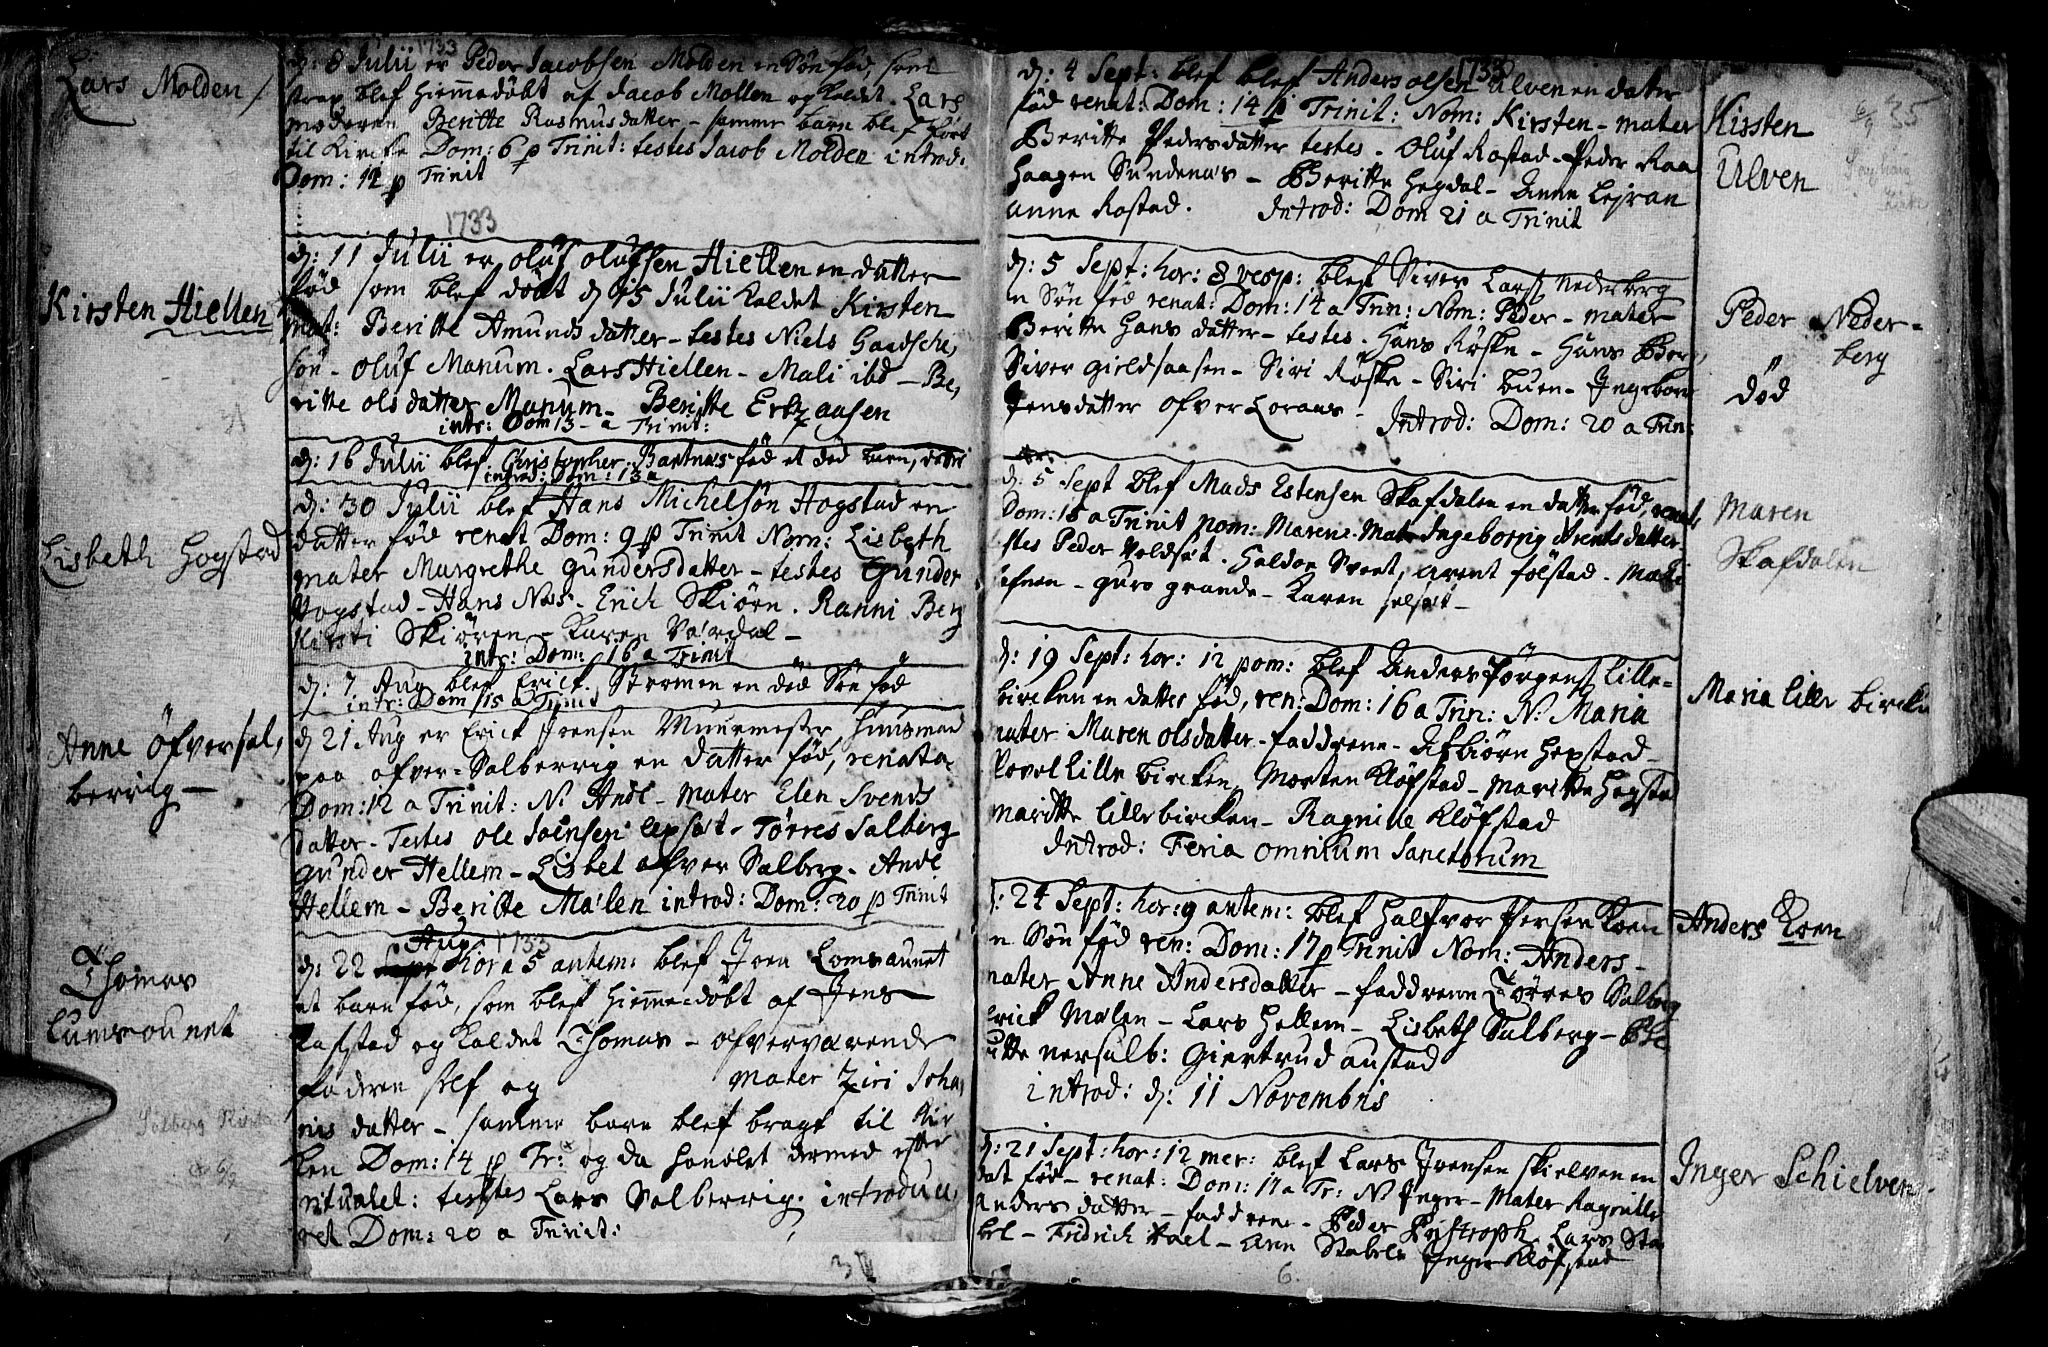 Lars Molden
1733
d: 8 Julii er Peder Jacobsen Molden en Søn fød, som
strax blef hiemmedøbt af Jacob Mollen og kaldet Lars
moderen Beritte Rasmusdatter - samme barn blef ført
til Kirke Dom: 6 p Trinit: testes Jacob Molden introd:
Dom: 12 p Trinit
1733
Kirsten Hiellen
d: 11 Julii er oluf olufsen Hiellen en datter
fød som blef døbt d 15 Julii kaldet Kirsten
mat: Beritte Amunds datter - testes Niels
søn - oluf Manum. Lars Hiellen - Mali ibd - Be,
ritte olsdatter Manum - Beritte
intr: Dom 13 - a Trinit:
d: 16 Julii blef Christopher Bartnes fød et død barn,
introd: Dom: 13 a
Lisbeth Hogstad
d: 30 Julii blef Hans Michelsøn Hogstad en
datter fød renat Dom: 9 p Trinit Nom: Lisbeth
mater Margrethe gundersdatter - testes gunder
Hogstad - Hans Ness - Erich Skiørn. Ranni Berg
Kirsti Skiøren - Karen Værdal -
intr: Dom: 16 a Trinit
d: 7 Aug blef Erick Stermen en død Søn fød
intr: Dom 15 a Trinit
Anne öfversal,
berrig -
d 21 Aug er Erick Jensen Muurmester, huusmand
paa ofver=Salberrig en datter fød, renata
Dom: 12 a Trinit: N: Andl - mater Elen Svends
datter - Testes ole Joensen lexset - Tørres Salberg
gunder Hellem - Lisbet ofver Salberg - Andl
Hellem - Beritte Mælen introd: Dom: 20 p Trinit
Thomas
Lumsounet
Aug 1733
d: 22 Sept hora 5 antem: blef Joen Lomsaunet
et barn fød, som blef hiemme-døbt af Jens
Rostad og kaldet Thomas - ofverværende
faderen self og mater Ziri Joha,
nis datter - samme barn blef bragt til Kir
ken Dom: 14 p Tr: og da handlet dermed efter
ritualet: testes Lars Salberrig. introduce,
ret Dom: 20 a Trinit:
Salberg Kirke
6/9
1733
d: 4 Sept: blef blef Anders olsen Ulven en datter
fød renat: Dom: 14 p Trinit: Nom: Kirsten - mater
Beritte Pedersdatter testes - Oluf Rostad - Peder Raa
Haagen Sundenæs - Beritte Hegdal - Anne Lejran
anne Rostad. Introd: Dom 21 a Trinit
Kirsten
Ulven
6/9 35
d: 5 Sept: hor: 8 vesp: blef Siver Lars Nederberg
en Søn fød renat: Dom: 14 a Trin: Nom: Peder - mater
Beritte Hans datter - testes. Hans Røske - Hans Berg,
Siver gieldsaasen - Siri Røske - Siri buen - Ingebor
Jensdatter ofver Loraas - Introd: Dom: 20 a Trin:
Peder Neder-
berg
død
d: 5 Sept blef Mads Estensen Skafdalen en datter fød, renat,
Dom: 15 a Trinit nom: Maren - Mater Ingeborrig Arentsdatter
testes Peder Voldset. Haldor Sveet, arent følstad. Mali
efnen - guro grande - Karen selset -
Maren
Skafdalen
d: 19 Sept: hor: 12 pom: blef Anders Jørgens Lille=
bircken en datter fød, ren: Dom: 16 a Trin: N: Maria
mater Maren olsdatter - faddrene - Asbiørn Hegstad -
Povel Lille bircken, Morten Kløfstad - Maritte Hegstad
maritte Lillebircken - Ragnille Kløfstad
Introd: Feria omnium Sanctorum
Maria Lille bircken
d: 24 Sept: hor: 9 antem: blef Halfvor Persen Koen
en Søn fød ren: Dom: 17 p Trinit Nom: Anders -
mater Anne Andersdatter - faddrene Tørres Salberg
Erick Mælen - Lars Hellem - Lisbeth Salberg - Be
ritte nersalb: Giertrud austad
introd: d: 11 Novembris
Anders Koen
d: 21 Sept: hor: 12 mer: blef Lars Jrensen skielven en
dat fød - renat: Dom: 17 a Tr: N Inger - Mater Ragnille
anders datter - faddrene - Peder Pystroph Lars Sta
bel - Fridrich - Ann Stabell Inger Kløfstad
Inger Schielven.
6.